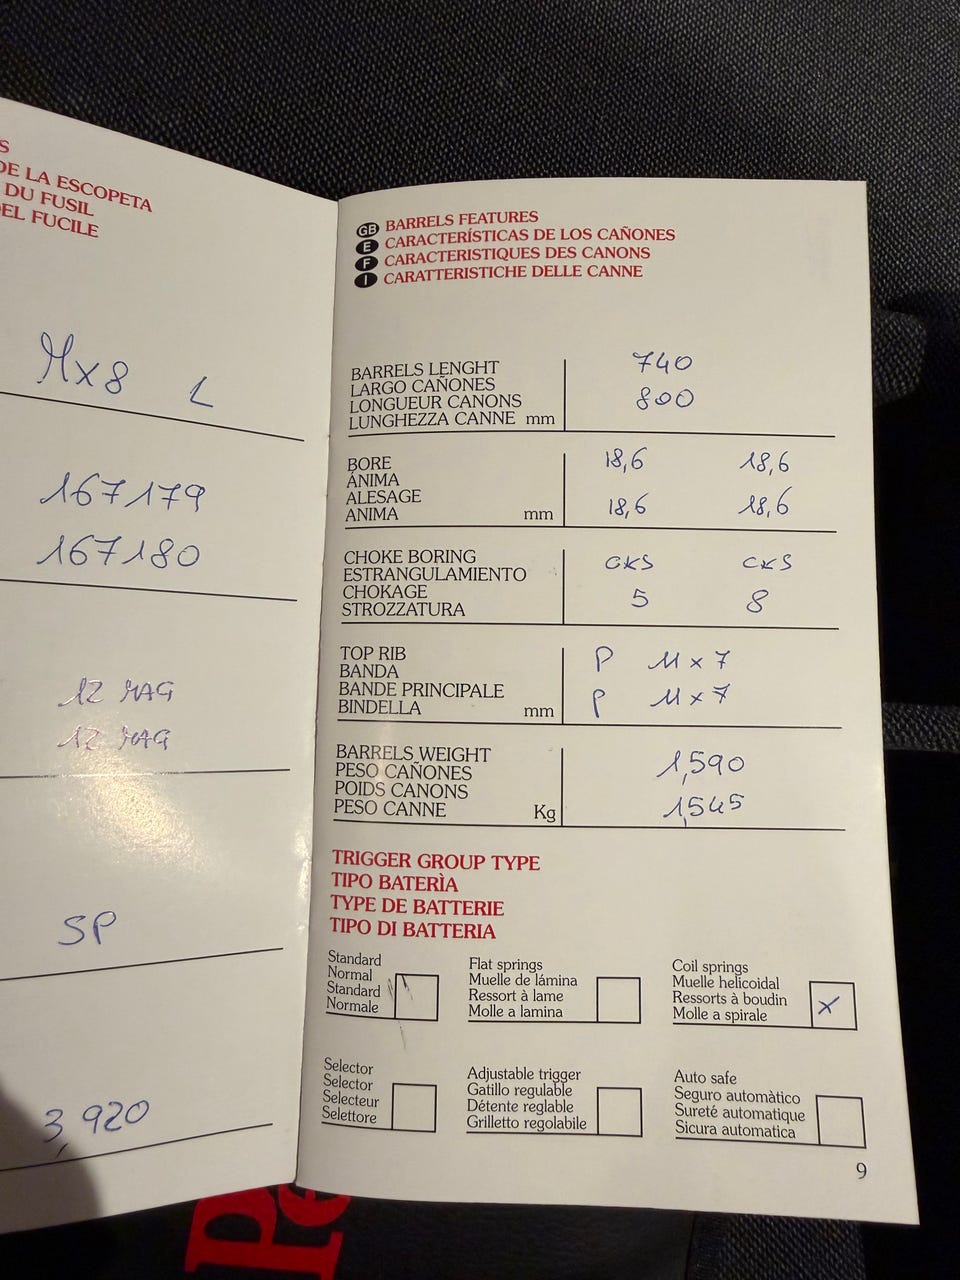 S
DE LA ESCOPETA
DU FUSIL
EL FUCILE
Mx8 L
167179
167180
12 MAG
12 MAG
SP
3,920
GB BARRELS FEATURES
E CARACTERÍSTICAS DE LOS CAÑONES
F CARACTERISTIQUES DES CANONS
I CARATTERISTICHE DELLE CANNE
BARRELS LENGHT 740
LARGO CAÑONES
LONGUEUR CANONS 800
LUNGHEZZA CANNE mm
BORE 18,6 18,6
ÁNIMA
ALESAGE 18,6 18,6
ANIMA mm
CHOKE BORING CKS CKS
ESTRANGULAMIENTO
CHOKAGE 5 8
STROZZATURA
TOP RIB P 11 x 7
BANDA
BANDE PRINCIPALE P 11 x 7
BINDELLA mm
BARRELS WEIGHT 1,590
PESO CAÑONES
POIDS CANONS 1,545
PESO CANNE Kg
TRIGGER GROUP TYPE
TIPO BATERÌA
TYPE DE BATTERIE
TIPO DI BATTERIA
Standard
Normal
Standard
Normale
Flat springs
Muelle de lámina
Ressort à lame
Molle a lamina
Coil springs
Muelle helicoidal
Ressorts à boudin
Molle a spirale
x
Selector
Selector
Selecteur
Selettore
Adjustable trigger
Gatillo regulable
Détente reglable
Grilletto regolabile
Auto safe
Seguro automàtico
Sureté automatique
Sicura automatica
9
Pe